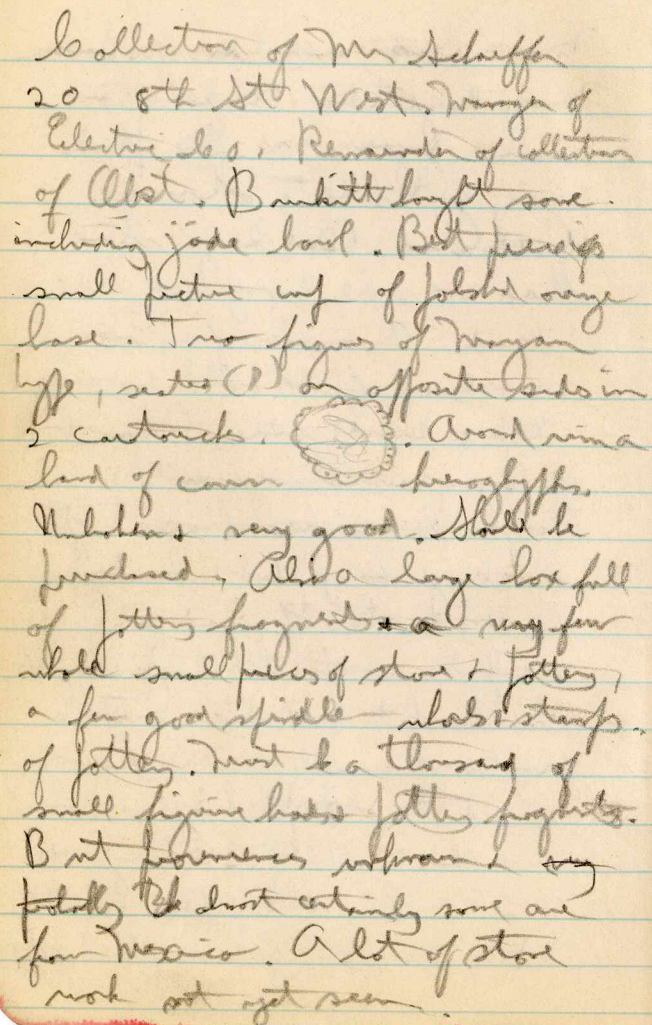 Collection of Mr Schaeffer
20 8th St West. Manager of
Electric Co. Remainder of collection
of Obst. Burkitt bought some
including jade bowl. Best piece is
small picture cup of polished orange
base. Two figures of Mayan
type, seated (?) on opposite sides in
2 cartouches. Around rim a
band of hieroglyphs.
Unbroken & very good. Should be
purchased. Also a large box full
of pottery fragments & a very few
whole small pieces of stone & pottery,
a few good spindle whorls & stamps
of pottery. Must be a thousand of
small figurine heads & pottery fragments.
But proveniences unknown & very
probably almost certainly some are
from Mexico. A lot of stone
work not yet seen.